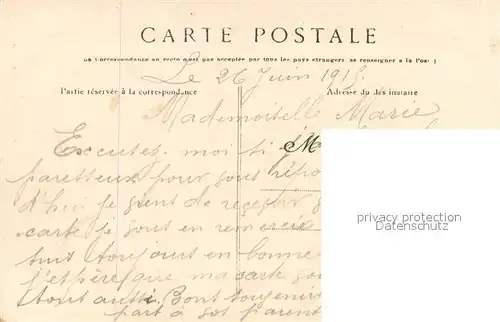 CARTE POSTALE
La Correspondance au recto n'est pas acceptée par tous les pays étrangers se renseigner à la Poste
Le 26 Juin 1915
Partie réservée à la correspondance
Adresse du destinataire
Mademoiselle Marie
Excusez moi si
M
paretteux pour vous répo
d'hui je vient de recevoir
carte je vout en remercie
suit toujours en bonne
j'espère que ma carte
tout autti. Bont souvenir
part à vot parent
privacy protection
www.oldthing.de